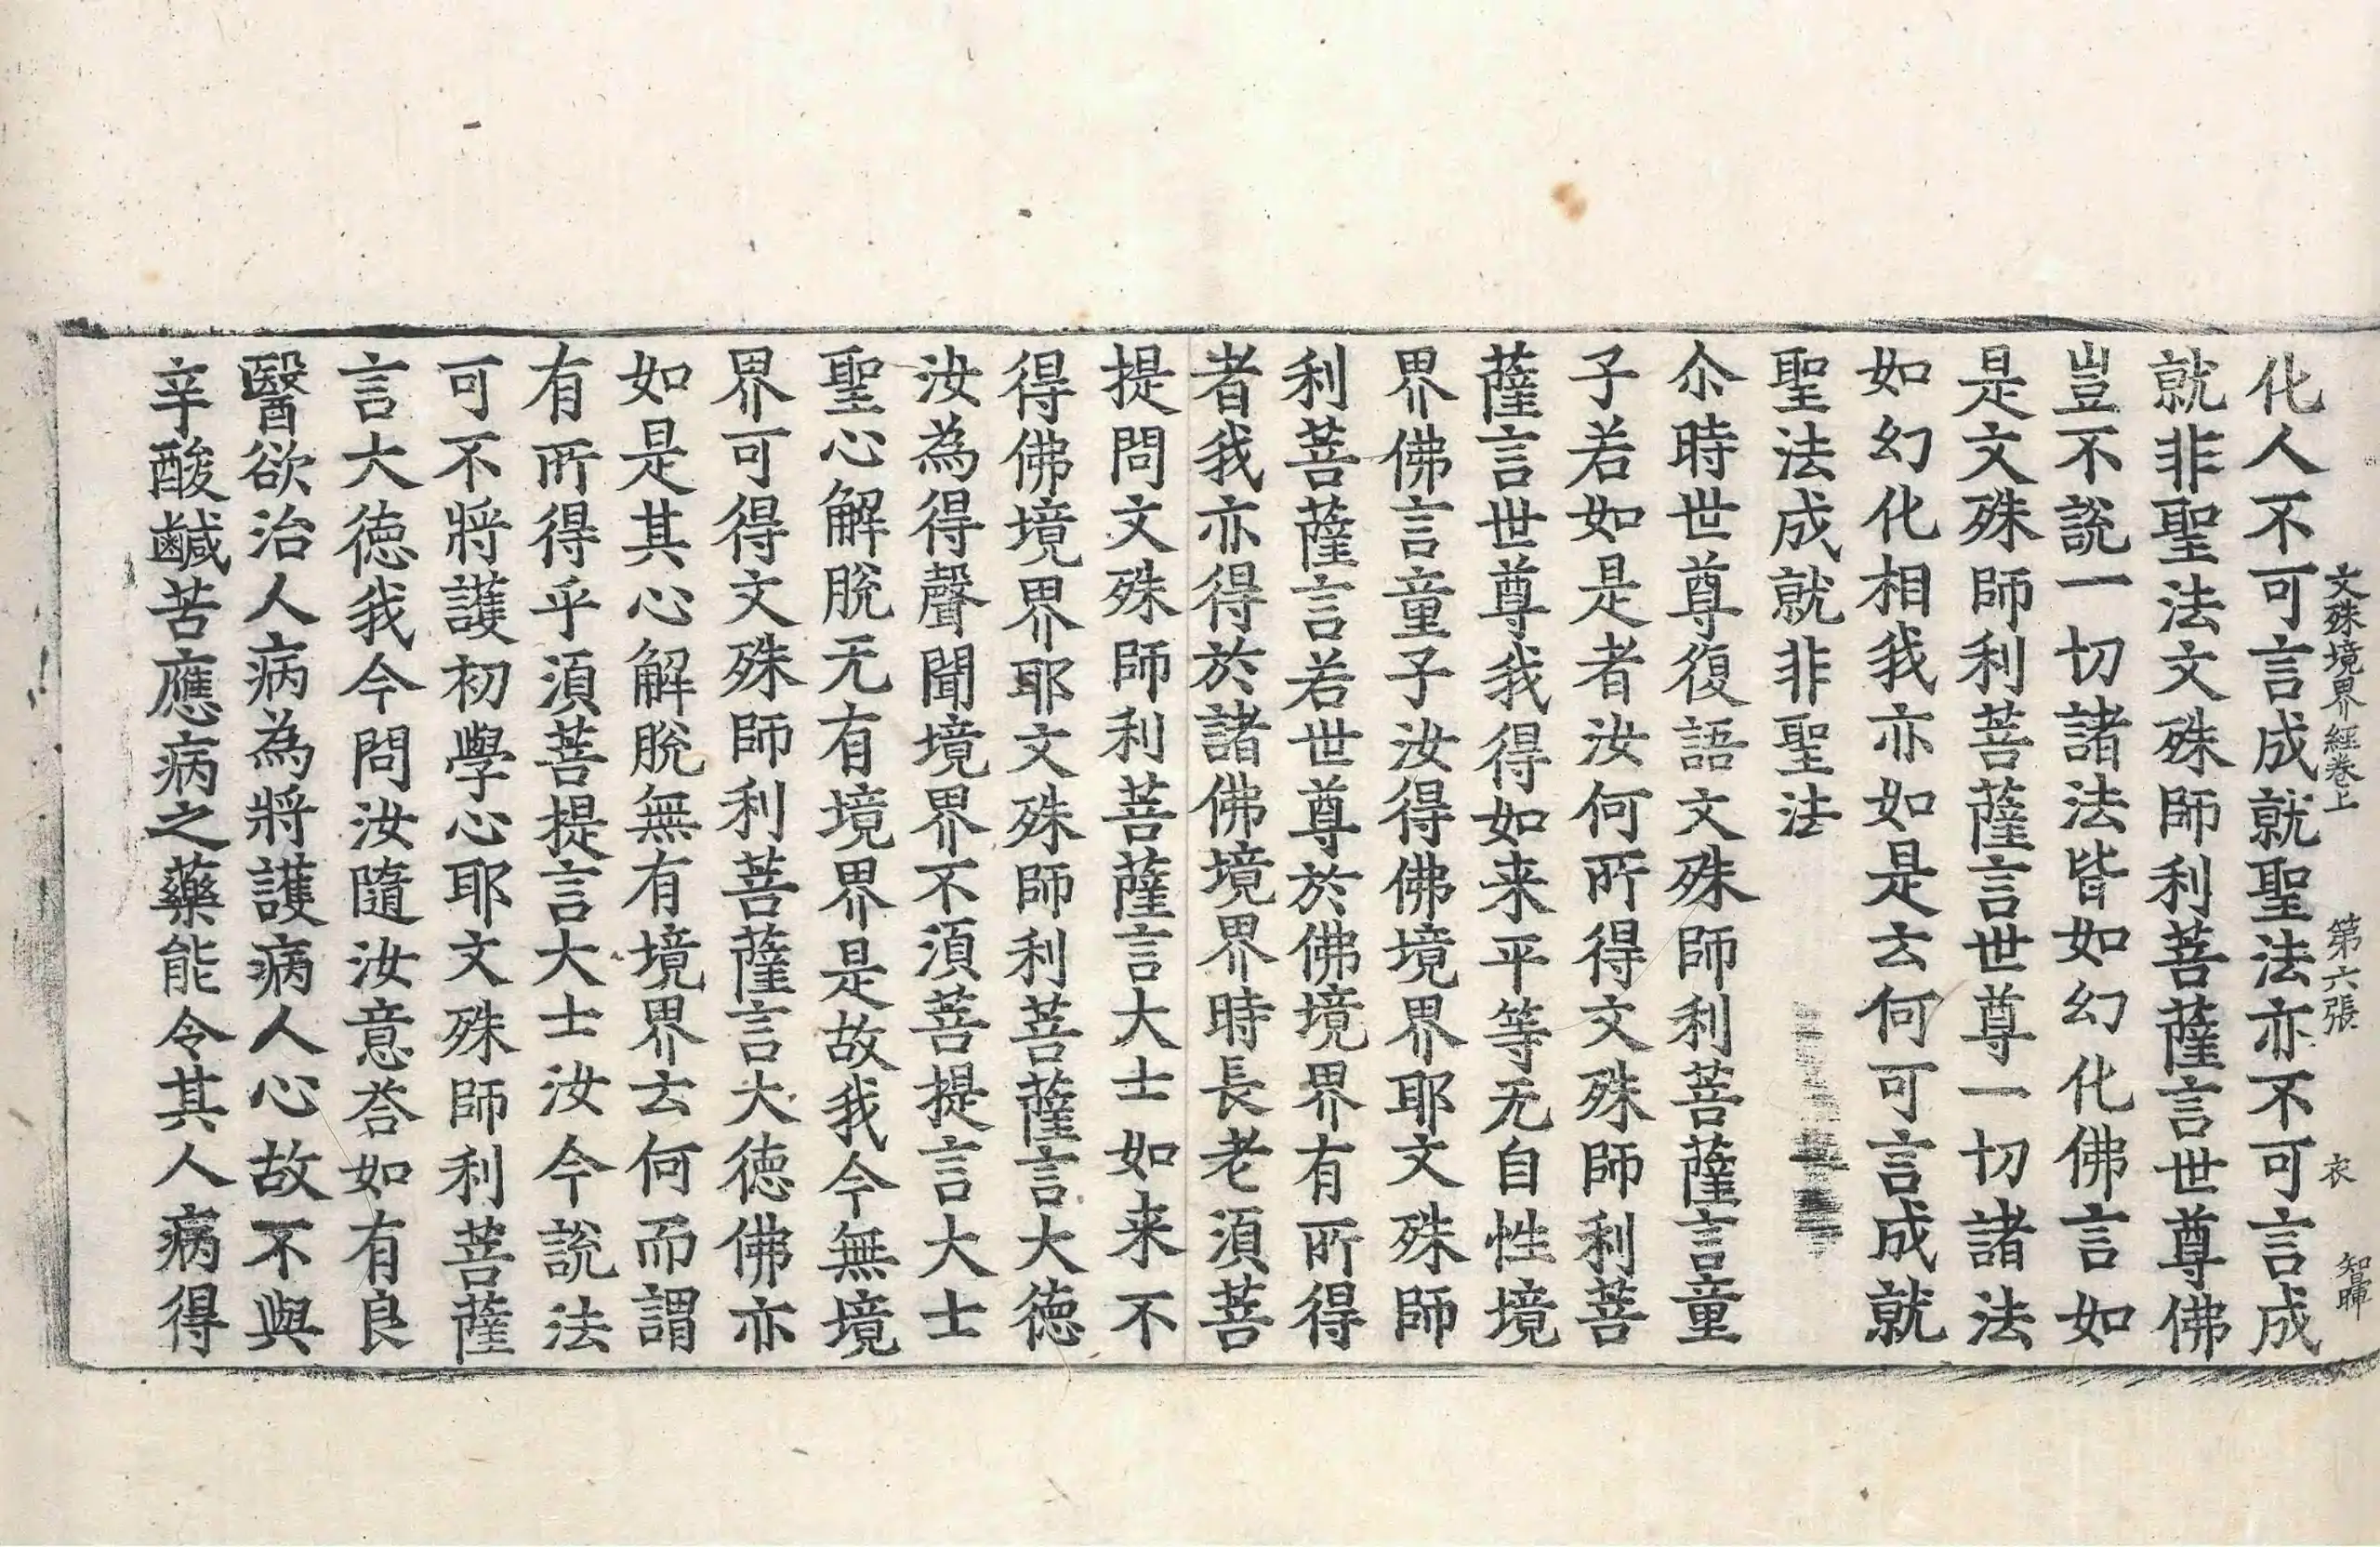 文殊境界經卷上 第六張 衣 智暉
化人不可言成就聖法亦不可言成
就非聖法文殊師利菩薩言世尊佛
豈不說一切諸法皆如幻化佛言如
是文殊師利菩薩言世尊一切諸法
如幻化相我亦如是云何可言成就
聖法成就非聖法
尒時世尊復語文殊師利菩薩言童
子若如是者汝何所得文殊師利菩
薩言世尊我得如来平等无自性境
界佛言童子汝得佛境界耶文殊師
利菩薩言若世尊於佛境界有所得
者我亦得於諸佛境界時長老湏菩
提問文殊師利菩薩言大士如来不
得佛境界耶文殊師利菩薩言大徳
汝為得聲聞境界不湏菩提言大士
聖心解脫无有境界是故我今無境
界可得文殊師利菩薩言大徳佛亦
如是其心解脫無有境界云何而謂
有所得乎湏菩提言大士汝今說法
可不將護初學心耶文殊師利菩薩
言大徳我今問汝隨汝意荅如有良
醫欲治人病為將護病人心故不與
辛酸鹹苦應病之藥能令其人病得